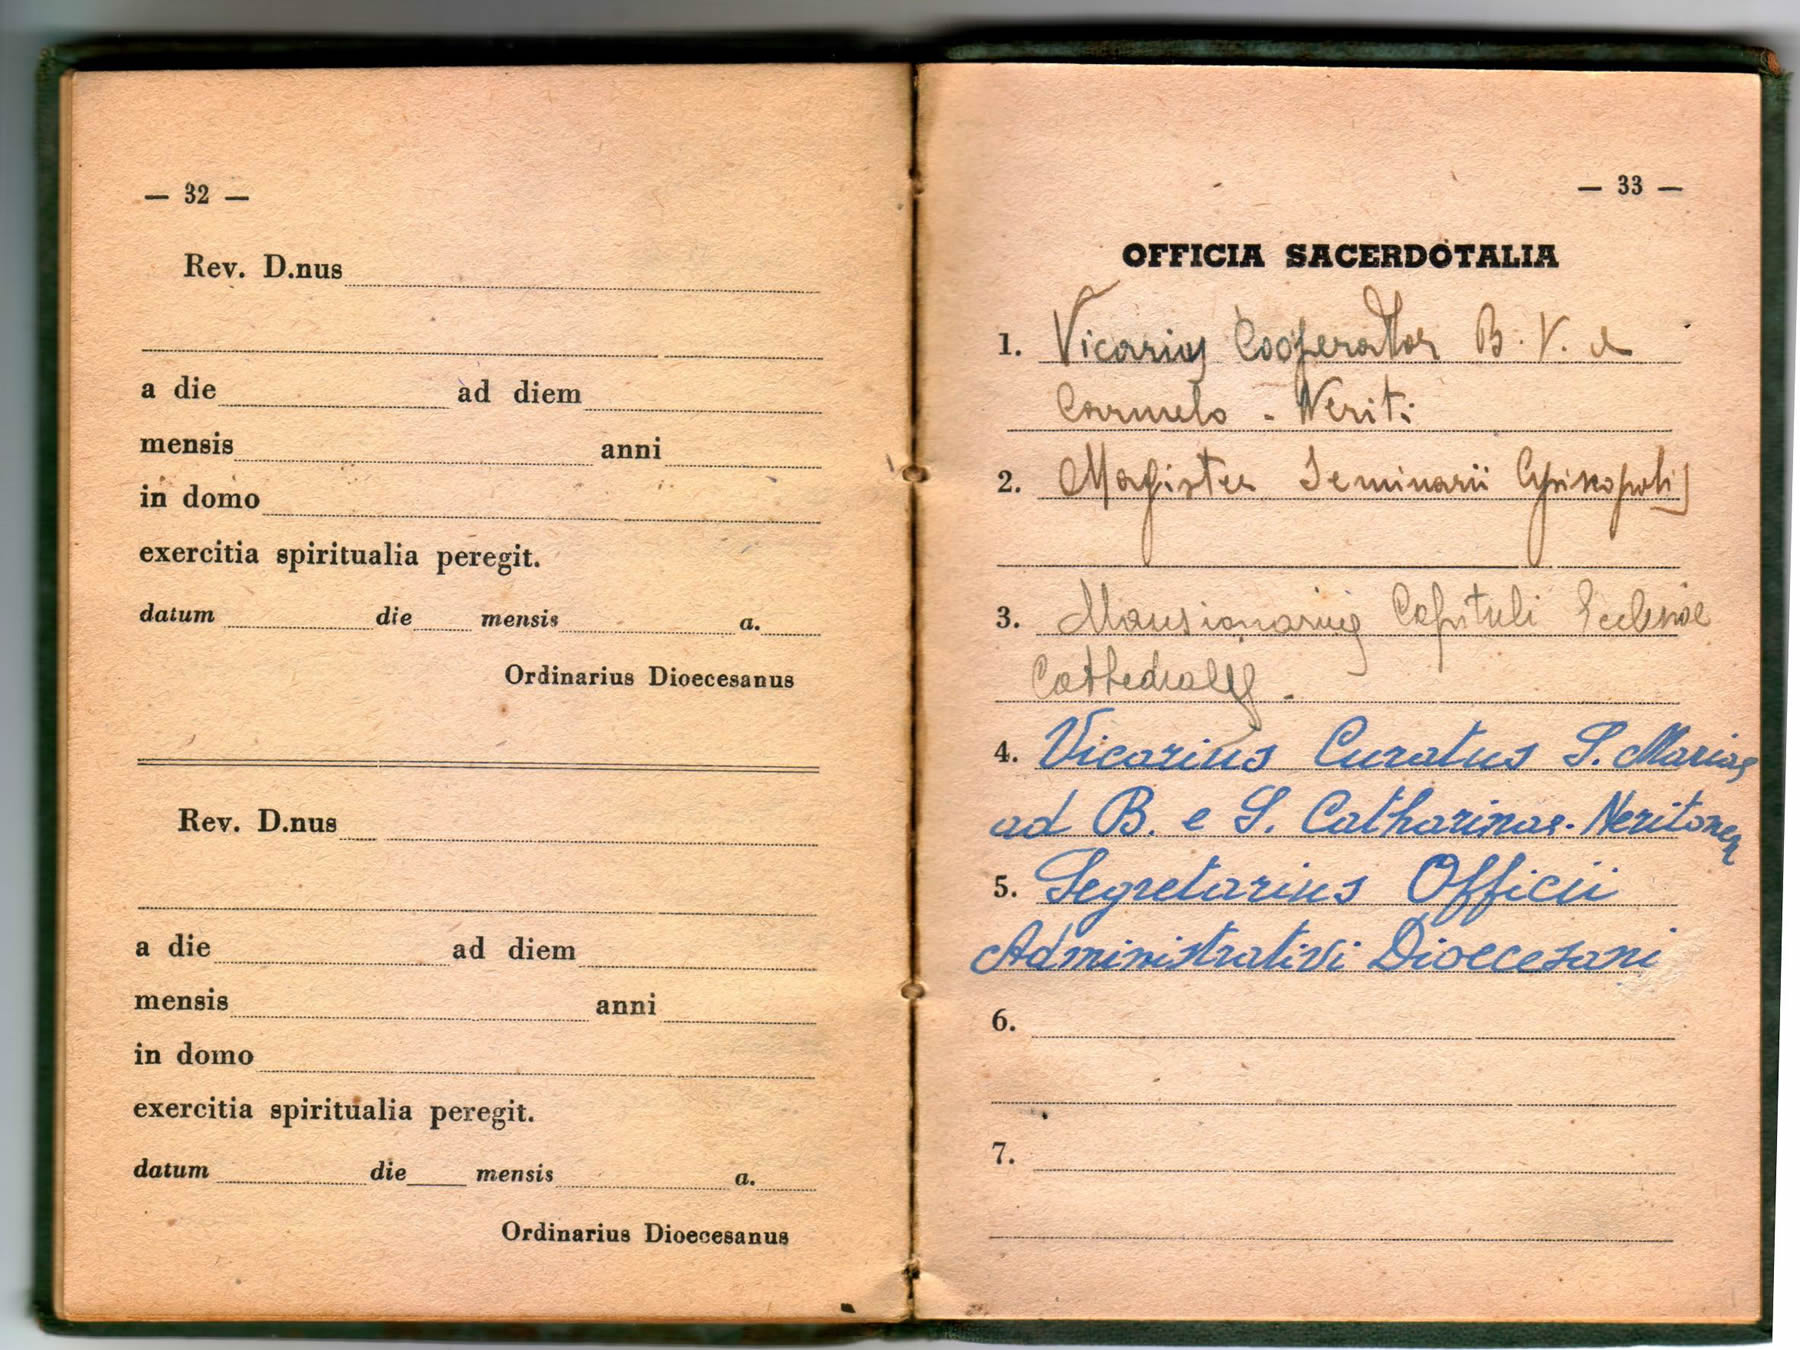 — 32 —
Rev. D.nus
a die ad diem
mensis anni
in domo
exercitia spiritualia peregit.
datum die mensis a.
Ordinarius Dioecesanus
Rev. D.nus
a die ad diem
mensis anni
in domo
exercitia spiritualia peregit.
datum die mensis a.
Ordinarius Dioecesanus
— 33 —
OFFICIA SACERDOTALIA
1. Vicarius Cooperator B. V. a
Carmelo - Neriti
2. Magister Seminarii Episkopolis
3. Mansionarius Capituli Ecclesiae
Cathedralis -
4. Vicarius Curatus S. Mariae
ad B. e S. Catharinae - Neritonen
5. Segretarius Officii
Administrativi Dioecesani
6.
7.